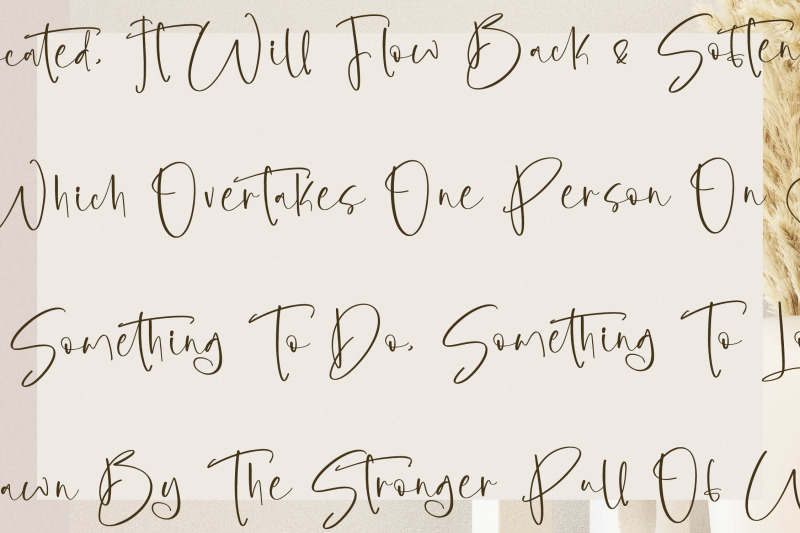 cated, It Will Flow Back & Soften
Which Overtakes One Person On
Something To Do, Something To Lo
awn By The Stronger Pull Of W